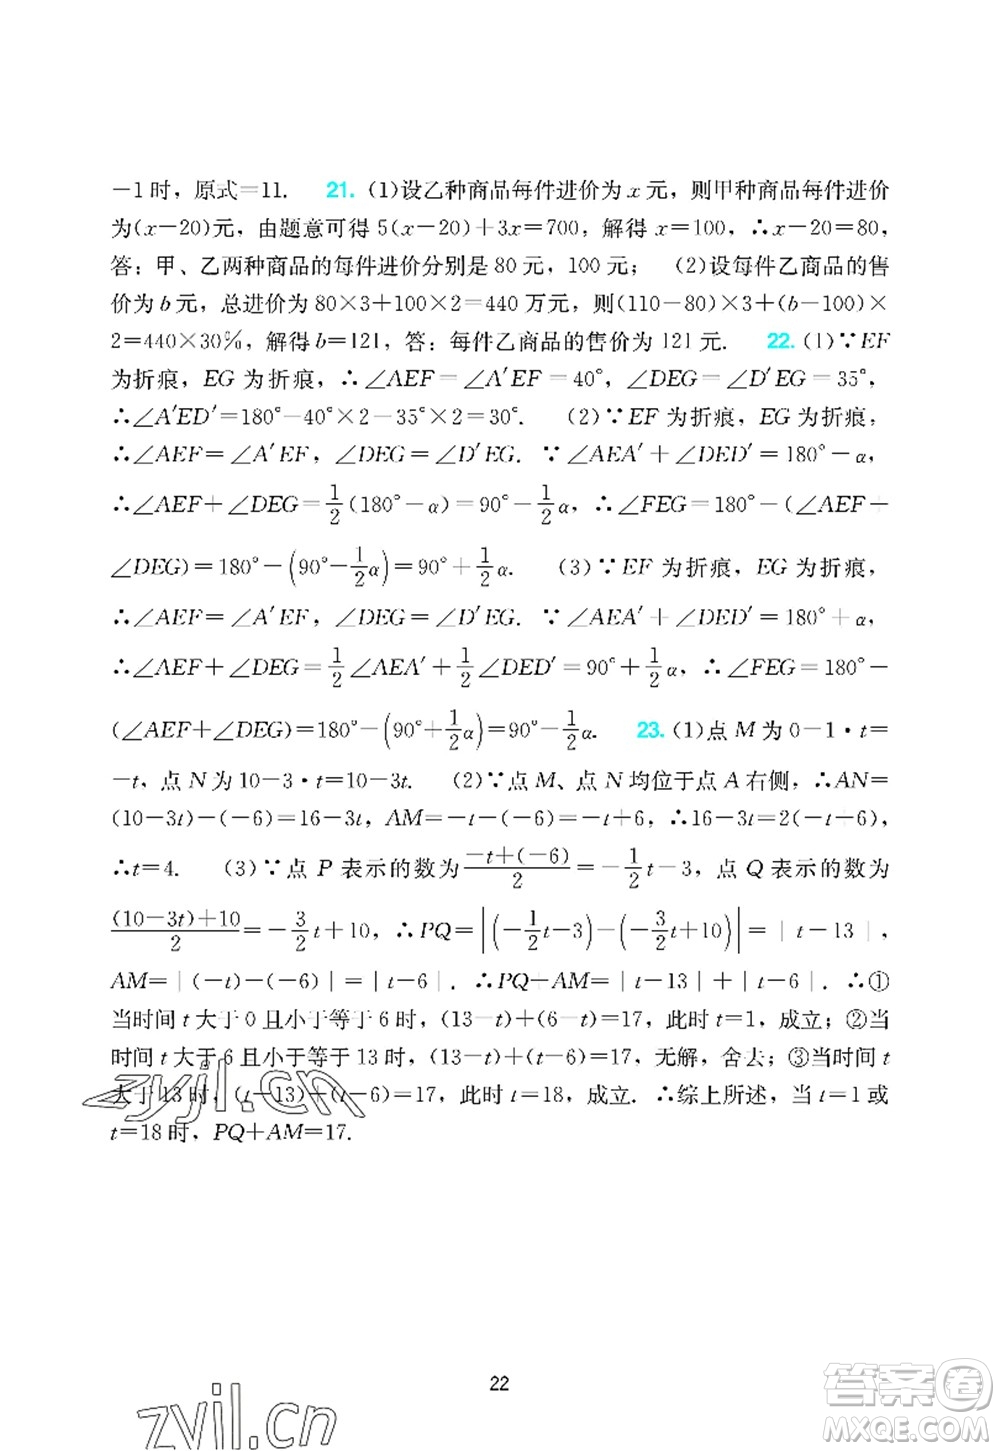 －1时，原式＝11.　21. (1)设乙种商品每件进价为 x 元，则甲种商品每件进价
为(x－20)元，由题意可得 5(x－20)＋3x＝700，解得 x＝100，∴x－20＝80，
答：甲、乙两种商品的每件进价分别是 80 元，100 元；　(2)设每件乙商品的售
价为 b 元，总进价为 80×3＋100×2＝440 万元，则(110－80)×3＋(b－100)×
2＝440×30%，解得 b＝121，答：每件乙商品的售价为 121 元.　22. (1)∵EF
为折痕，EG 为折痕，∴∠AEF＝∠A′EF＝40°，∠DEG＝∠D′EG＝35°，
∴∠A′ED′＝180°－40°×2－35°×2＝30°.　(2)∵EF 为折痕，EG为折痕，
∴∠AEF＝∠A′EF，∠DEG＝∠D′EG. ∵∠AEA′＋∠DED′＝180°－α，
∴∠AEF＋∠DEG＝1/2(180°－α)＝90°－1/2α，∴∠FEG＝180°－(∠AEF＋
∠DEG)＝180°－(90°－1/2α)＝90°＋1/2α.　(3)∵EF 为折痕，EG为折痕，
∴∠AEF＝∠A′EF，∠DEG＝∠D′EG. ∵∠AEA′＋∠DED′＝180°＋α，
∴∠AEF＋∠DEG＝1/2∠AEA′＋1/2∠DED′＝90°＋1/2α，∴∠FEG＝180°－
(∠AEF＋∠DEG)＝180°－(90°＋1/2α)＝90°－1/2α.　23. (1)点 M 为 0－1·t＝
－t，点 N 为 10－3·t＝10－3t.　(2)∵点 M、点 N 均位于点 A 右侧，∴AN＝
(10－3t)－(－6)＝16－3t，AM＝－t－(－6)＝－t＋6，∴16－3t＝2(－t＋6)，
∴t＝4.　(3)∵点 P 表示的数为(－t＋(－6))/2＝－1/2t－3，点 Q 表示的数为
((10－3t)＋10)/2＝－3/2t＋10，∴PQ＝|(－1/2t－3)－(－3/2t＋10)|＝|t－13|，
AM＝|(－t)－(－6)|＝|t－6|. ∴PQ＋AM＝|t－13|＋|t－6|. ∴①
当时间 t 大于 0 且小于等于 6 时，(13－t)＋(6－t)＝17，此时 t＝1，成立；②当
时间 t 大于 6 且小于等于 13 时，(13－t)＋(t－6)＝17，无解，舍去；③当时间 t
大于 13 时，(t－13)＋(t－6)＝17，此时 t＝18，成立. ∴综上所述，当 t＝1 或
t＝18 时，PQ＋AM＝17.
zyjl.cn
22
zyjl.cn
答案圈
MXQE.COM